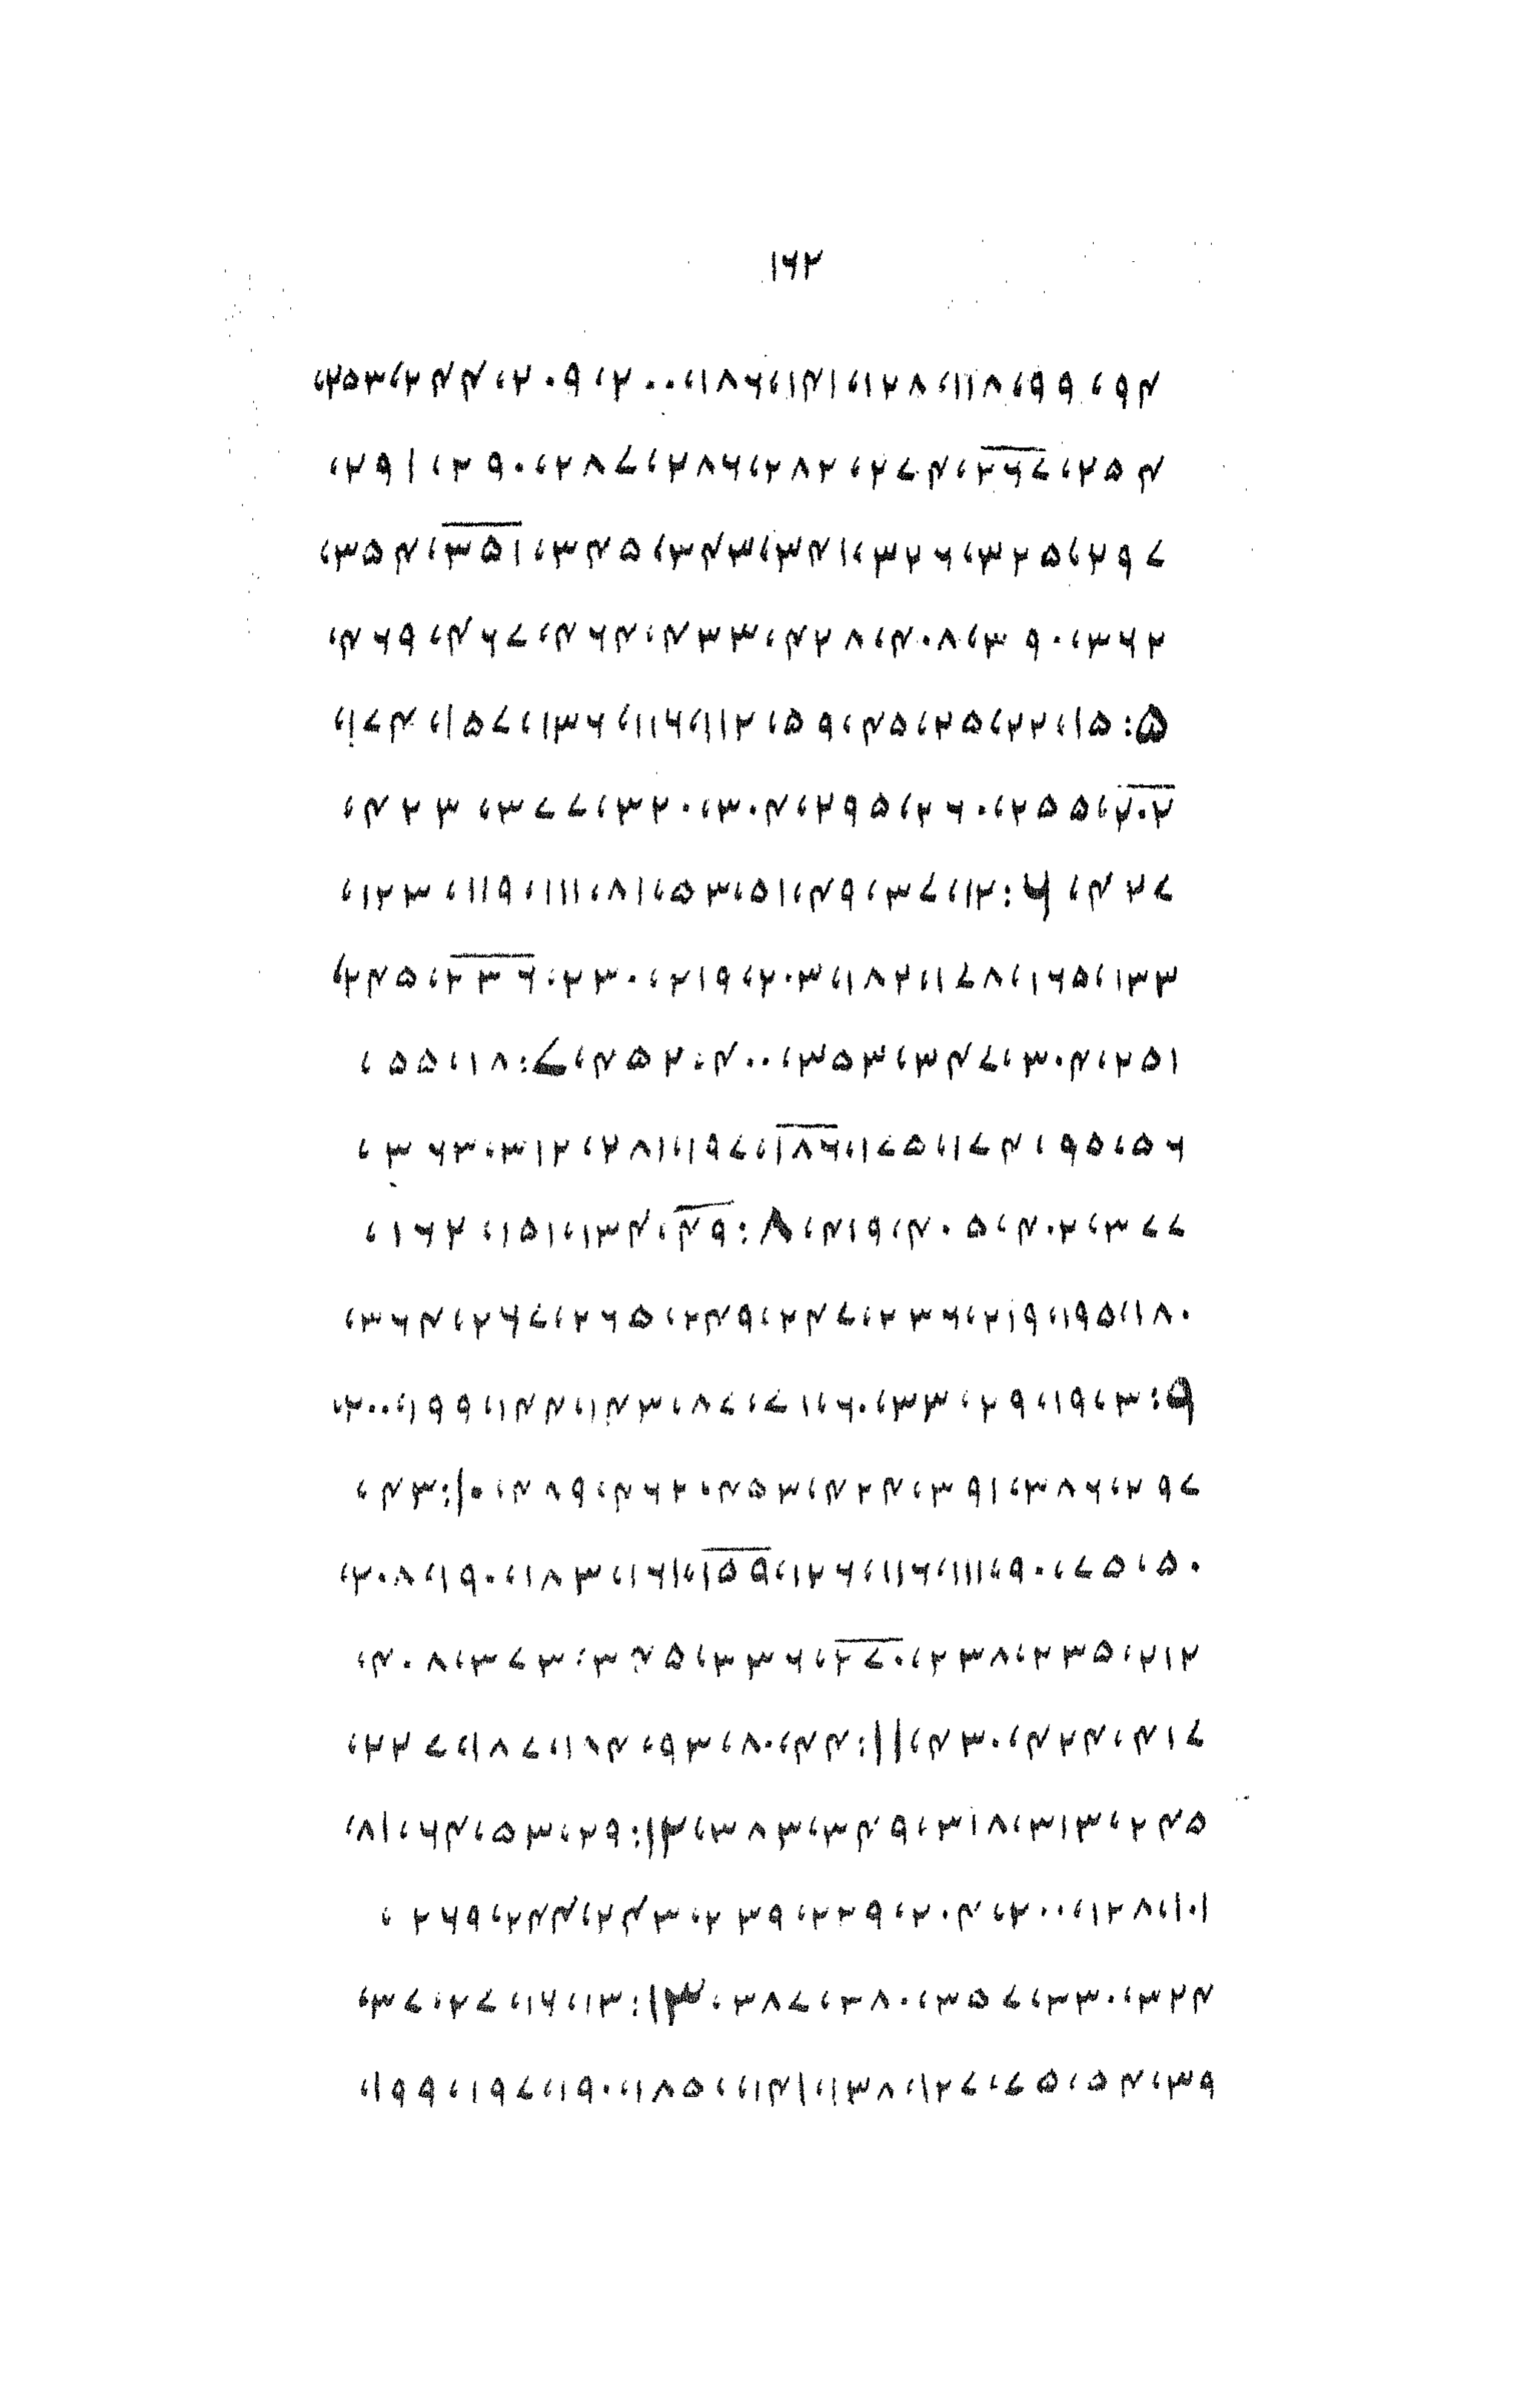 ۱۶۲
۹۴، ۹۹، ۱۱۸، ۱۲۸، ۱۴۱، ۱۸۶، ۲۰۰، ۲۰۹، ۲۴۴، ۲۵۳،
۲۵۴، ۲۶۷، ۲۷۴، ۲۸۲، ۲۸۶، ۲۸۷، ۲۹۰، ۲۹۱،
۲۹۷، ۳۲۵، ۳۲۶، ۳۴۱، ۳۴۳، ۳۴۵، ۳۵۱، ۳۵۴،
۳۶۲، ۳۹۰، ۴۰۸، ۴۲۸، ۴۳۳، ۴۶۴، ۴۶۷، ۴۶۹،
۵: ۱۵، ۲۲، ۲۵، ۴۵، ۵۹، ۱۱۲، ۱۱۶، ۱۳۶، ۱۵۷، ۱۷۴،
۲۰۲، ۲۵۵، ۲۶۰، ۲۹۵، ۳۰۴، ۳۲۰، ۳۷۷، ۴۲۳،
۴۲۷، ۶: ۱۲، ۳۷، ۴۹، ۵۱، ۵۳، ۸۱، ۱۱۱، ۱۱۹، ۱۲۳،
۱۳۳، ۱۶۵، ۱۷۸، ۱۸۲، ۲۰۳، ۲۱۹، ۲۳۰، ۲۳۶، ۲۴۵،
۲۵۱، ۳۰۴، ۳۴۷، ۳۵۳، ۴۰۰، ۴۵۲، ۷: ۱۸، ۵۵،
۵۶، ۹۵، ۱۷۴، ۱۷۵، ۱۸۶، ۱۹۷، ۲۸۱، ۳۱۲، ۳۶۳،
۳۷۷، ۴۰۲، ۴۰۵، ۴۱۹، ۸: ۴۹، ۱۳۴، ۱۵۱، ۱۶۲،
۱۸۰، ۱۹۵، ۲۱۹، ۲۳۶، ۲۴۷، ۲۴۹، ۲۶۵، ۲۶۷، ۳۶۴،
۹: ۳، ۱۹، ۲۹، ۳۳، ۶۰، ۷۱، ۸۷، ۱۴۳، ۱۴۴، ۱۹۹، ۲۰۰،
۲۹۷، ۳۸۶، ۳۹۱، ۴۲۴، ۴۵۳، ۴۶۲، ۴۸۹، ۱۰: ۴۳،
۵۰، ۷۵، ۹۰، ۱۱۱، ۱۱۶، ۱۲۶، ۱۵۹، ۱۶۱، ۱۸۳، ۱۹۰، ۲۰۸،
۲۱۲، ۲۳۵، ۲۳۸، ۲۷۰، ۳۳۶، ۳۴۵، ۳۷۳، ۴۰۸،
۴۱۷، ۴۲۴، ۴۳۰، ۱۱: ۴۴، ۸۰، ۹۳، ۱۸۴، ۱۸۷، ۲۲۷،
۲۴۵، ۳۱۳، ۳۱۸، ۳۴۹، ۳۸۳، ۱۲: ۲۹، ۵۳، ۶۴، ۸۱،
۱۰۱، ۱۲۸، ۲۰۰، ۲۰۴، ۲۲۹، ۲۳۹، ۲۴۳، ۲۴۴، ۲۶۹،
۳۲۴، ۳۳۰، ۳۵۷، ۳۸۰، ۳۸۷، ۱۳: ۱۳، ۱۶، ۲۷، ۳۷،
۳۹، ۵۴، ۷۵، ۱۲۷، ۱۳۸، ۱۴۱، ۱۸۵، ۱۹۰، ۱۹۷، ۱۹۹،